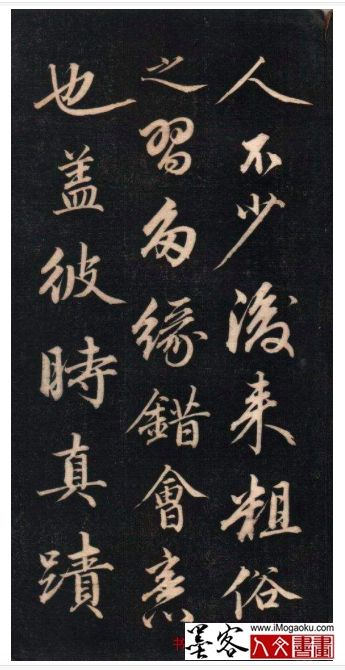 人不少後来粗俗
之習多緣錯會意
也盖彼時真蹟
www.iMogaoku.com
墨客人文書畫